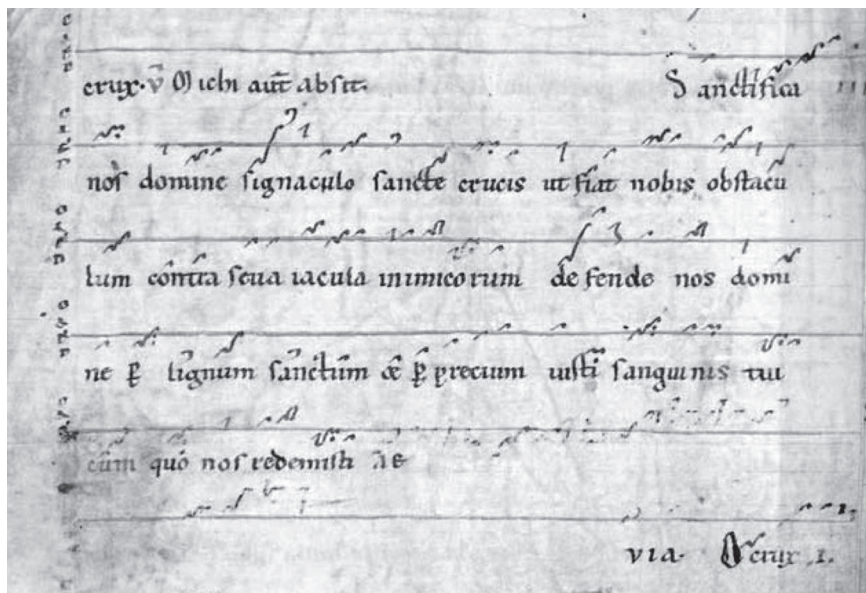 crux. v̄ Michi aut̄ absit. Sanctifica
nos domine signaculo sancte crucis ut fiat nobis obstacu
lum contra seua iacula inimicorum defende nos domi
ne ꝑ lignum sanctum & ꝑ precium iusti sanguinis tui
cum quo nos redemisti
via. O crux